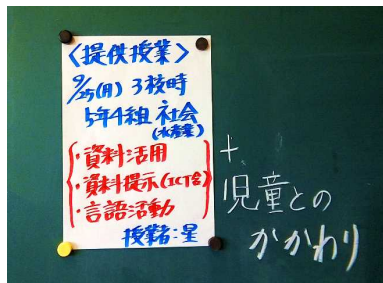 〈提供授業〉
9/25(月) 3校時
5年4組 社会
(水産業)
・資料活用
・資料提示(ICT含)
・言語活動
授業者:星
+
児童との
かかわり